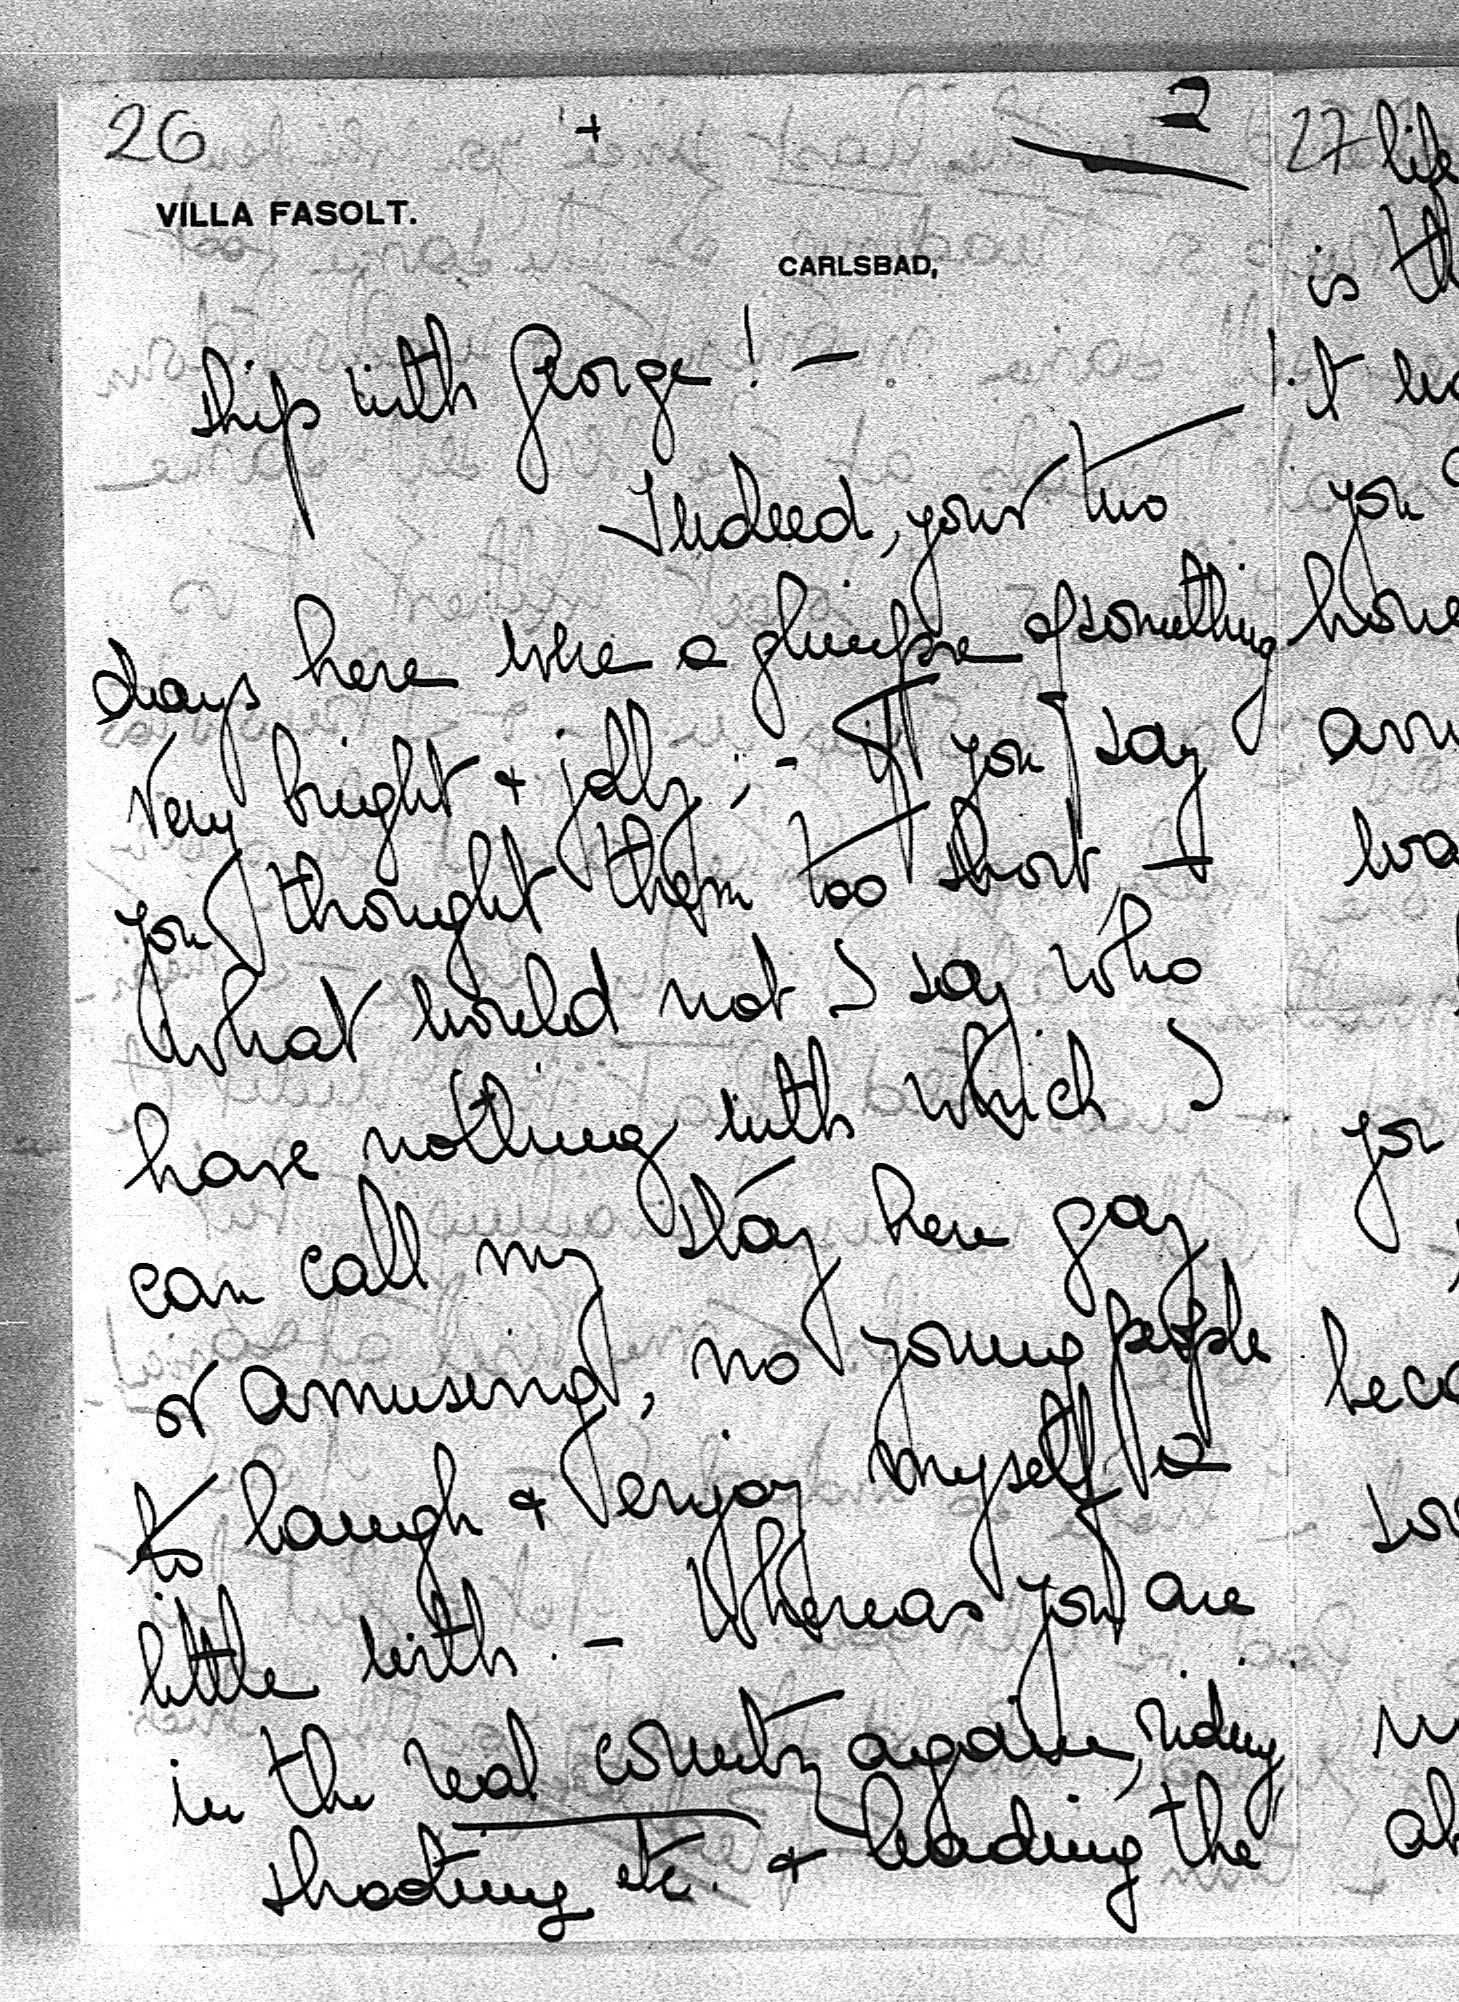 26 + 2
VILLA FASOLT.
CARLSBAD,
ship with George! —
Indeed, your two
days here were a glimpse of something
very bright & jolly; - If you say
you thought them too short, —
what would not I say who
have nothing with which I
can call my stay here gay
or amusing, no young people
to laugh & enjoy myself a
little with. — Whereas you are
in the real country again, riding
shooting etc. & leading the
27 life
is th
it
you
home
you